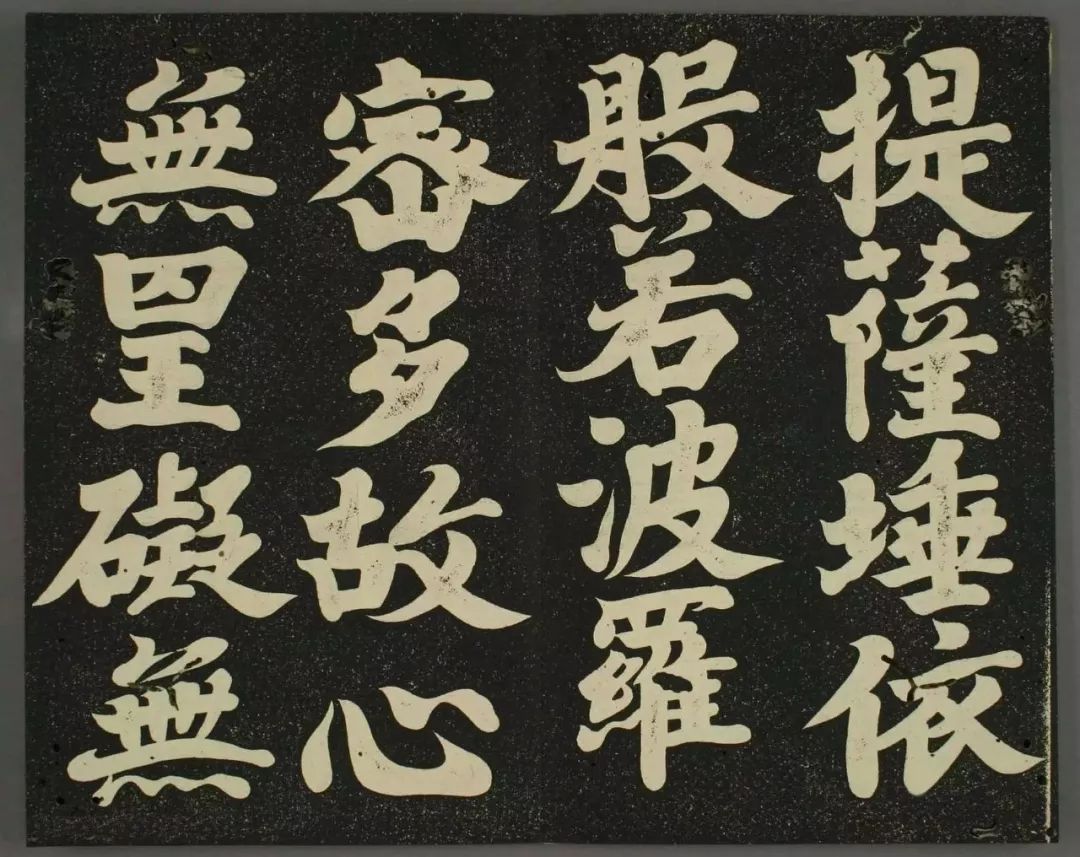 提薩埵依
般若波羅
密多故心
無罣礙無